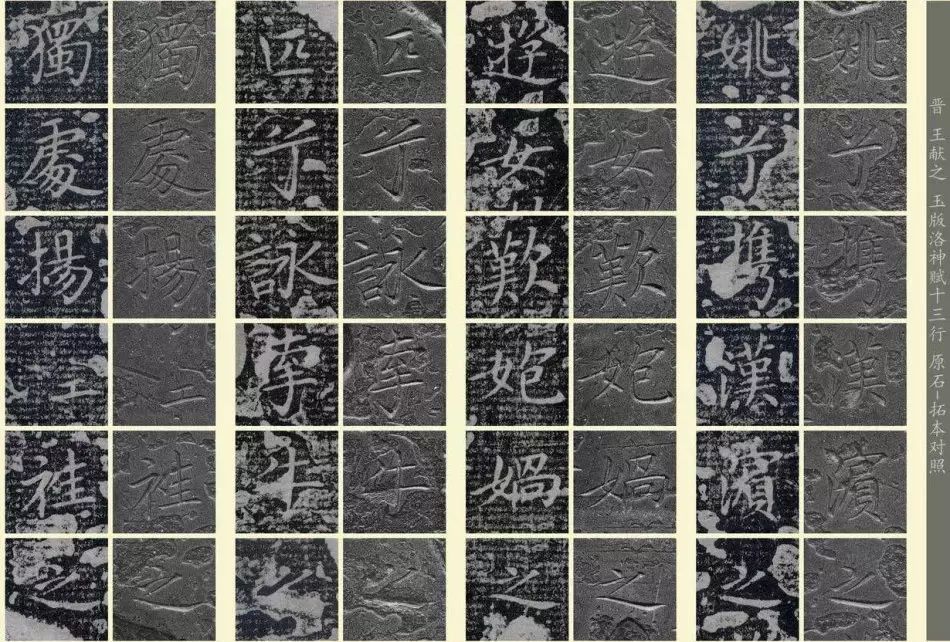 晋 王献之 玉版洛神赋十三行 原石-拓本对照
姚兮携漢濱之
姚兮携漢濱之
遊女歎媧之
遊女歎媧之
匹兮詠牽牛之
匹兮詠牽牛之
獨處揚袿之
獨處揚袿之